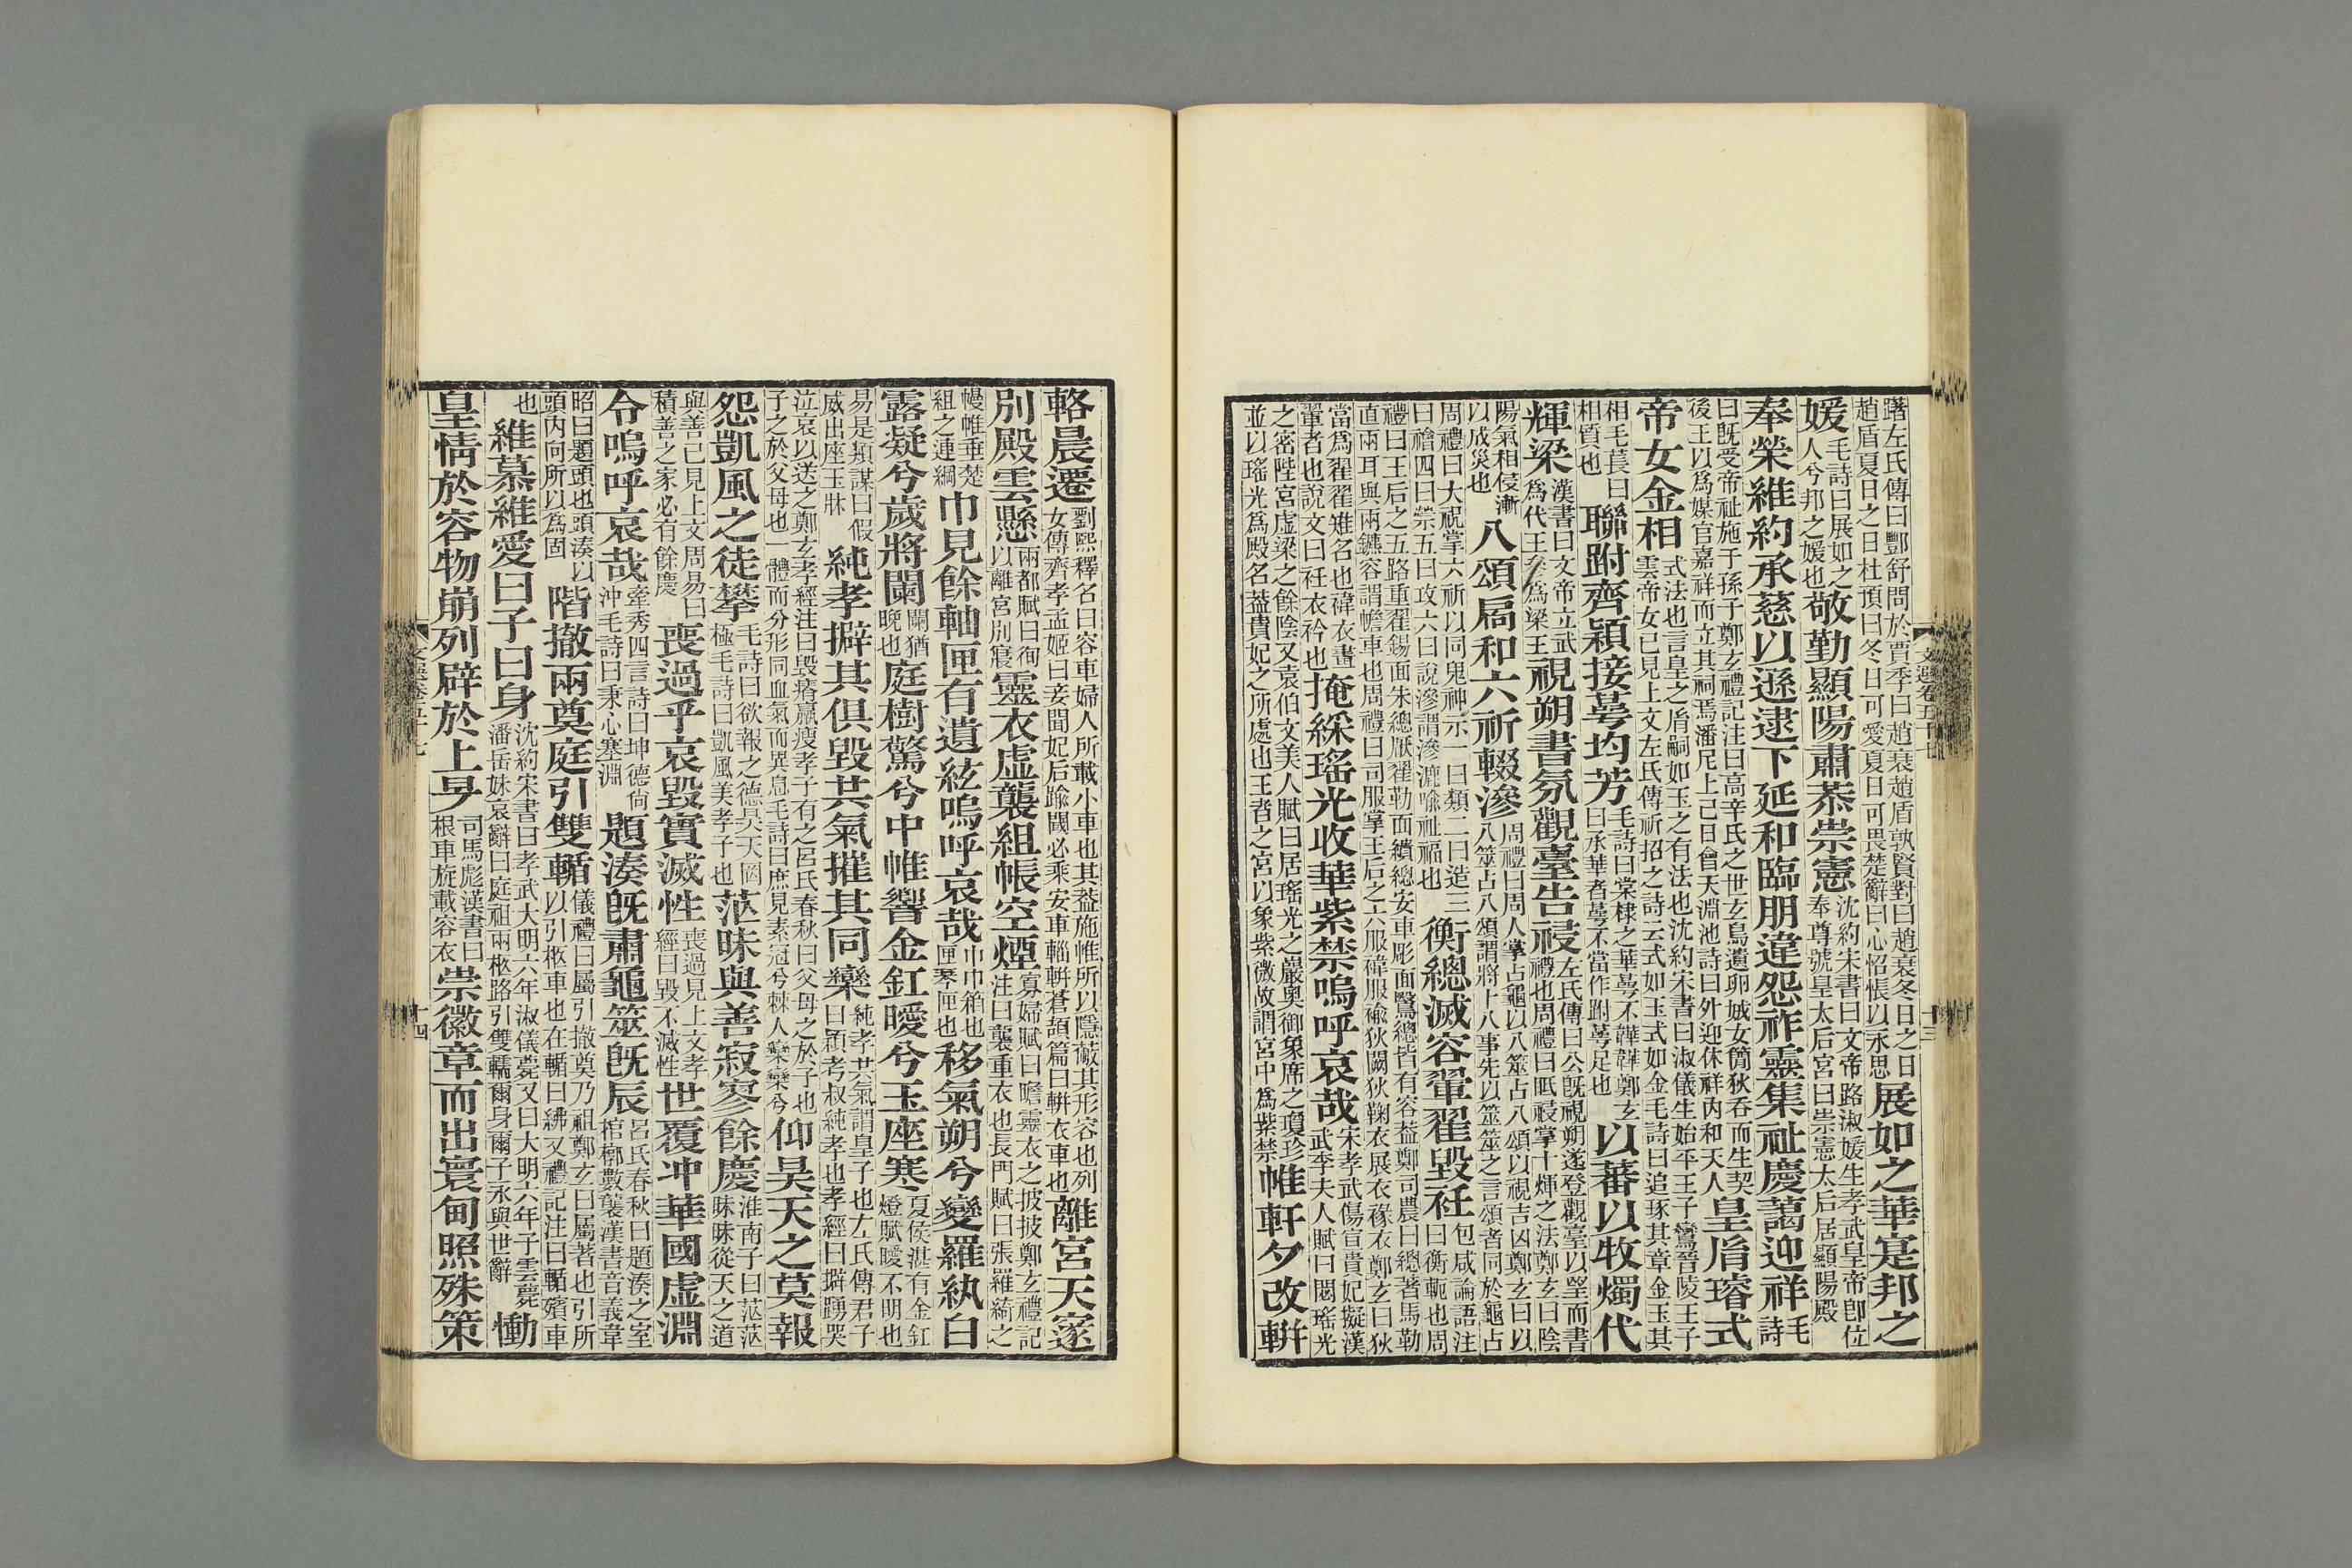 躇左氏傳曰酆舒問於賈季曰趙衰趙盾孰賢對曰趙衰冬日之日趙盾夏日之日杜預曰冬日可愛夏日可畏楚辭曰心怊悵以永思展如之華寔邦之
媛毛詩曰展如之人兮邦之媛也敬勤顯陽肅恭崇憲沈約宋書曰文帝路淑媛生孝武皇帝卽位奉尊號皇太后宮曰崇憲太后居顯陽殿
奉榮維約承慈以遜逮下延和臨朋違怨祚靈集祉慶藹迎祥毛詩
曰旣受帝祉施于孫子鄭玄禮記注曰高辛氏之世玄鳥遺卵娀女簡狄吞而生契後王以爲媒官嘉祥而立其祠焉潘尼上巳日會天淵池詩曰外迎休祥內和天人皇胤璿式
帝女金相式法也言皇之胤嗣如玉之有法也沈約宋書曰淑儀生始平王子鸞晉陵王子雲帝女已見上文左氏傳祈招之詩云式如玉式如金毛詩曰追琢其章金玉其
相毛萇曰相質也聯跗齊穎接萼均芳毛詩曰棠棣之華萼不韡韡鄭玄曰承華者萼不當作跗萼足也以蕃以牧燭代
輝梁漢書曰文帝立武爲代王參爲梁王視朔書氛觀臺告祲左氏傳曰公旣視朔遂登觀臺以望而書禮也周禮曰眡祲掌十煇之法鄭玄曰陰
陽氣相侵漸以成災也八頌扃和六祈輟滲周禮曰周人掌占龜以八筮占八頌以視吉凶鄭玄曰以八筮占八頌謂將卜八事先以筮筮之言頌者同於龜占
周禮曰大祝掌六祈以同鬼神示一曰類二曰造三曰禬四曰禜五曰攻六曰說滲謂滲漉喩祉福也衡總滅容翬翟毀衽包咸論語注曰衡軛也周
禮曰王后之五路重翟錫面朱總厭翟勒面繢總安車彫面鷖總皆有容蓋鄭司農曰總著馬勒直兩耳與兩鑣容謂幨車也周禮曰司服掌王后之六服褘服褕狄闕狄鞠衣展衣褖衣鄭玄曰狄
當爲翟翟雉名也褘衣畫翬者也說文曰衽衣衿也掩綵瑤光收華紫禁嗚呼哀哉宋孝武傷宣貴妃擬漢武李夫人賦曰閟瑤光
之密陛宮虛梁之餘陰又袁伯文美人賦曰居瑤光之巖奧御象席之瓊珍並以瑤光爲殿名蓋貴妃之所處也王者之宮以象紫微故謂宮中爲紫禁帷軒夕改軿
輅晨遷劉熙釋名曰容車婦人所載小車也其蓋施帷所以隱蔽其形容也列女傳齊孝孟姬曰妾聞妃后踰閾必乘安車輜軿蒼頡篇曰軿衣車也離宮天邃
別殿雲懸兩都賦曰徇以離宮別寢靈衣虛襲組帳空煙寡婦賦曰瞻靈衣之披披鄭玄禮記注曰襲重衣也長門賦曰張羅綺之
幔帷垂楚組之連綱巾見餘軸匣有遺絃嗚呼哀哉巾巾箱也匣琴匣也移氣朔兮變羅紈白
露凝兮歲將闌闌猶晚也庭樹驚兮中帷響金釭曖兮玉座寒夏侯湛有金釭燈賦曖不明也
易是類謀曰假威出座玉牀純孝擗其俱毀共氣摧其同欒純孝共氣謂皇子也左氏傳君子曰潁考叔純孝也孝經曰擗踴哭
泣哀以送之鄭玄孝經注曰毀瘠羸瘦孝子有之呂氏春秋曰父母之於子也子之於父母也一體而分形同血氣而異息毛詩曰庶見素冠兮棘人欒欒兮仰昊天之莫報
怨凱風之徒攀毛詩曰欲報之德昊天罔極毛詩曰凱風美孝子也茫昧與善寂寥餘慶淮南子曰茫茫昧昧從天之道
與善已見上文周易曰積善之家必有餘慶喪過乎哀毀實滅性喪過見上文孝經曰毀不滅性世覆沖華國虛淵
令嗚呼哀哉牽秀四言詩曰坤德尙沖毛詩曰秉心塞淵題湊旣肅龜筮旣辰呂氏春秋曰題湊之室棺椁數襲漢書音義韋
昭曰題頭也頭湊以頭內向所以爲固階撤兩奠庭引雙輴儀禮曰屬引撤奠乃祖鄭玄曰屬著也引所以引柩車也在輴曰紼又禮記注曰輴殯車
也維慕維愛曰子曰身沈約宋書曰孝武大明六年淑儀薨又曰大明六年子雲薨潘岳妹哀辭曰庭祖兩柩路引雙轜爾身爾子永與世辭慟
皇情於容物崩列辟於上旻司馬彪漢書曰根車旋載容衣崇徽章而出寰甸照殊策